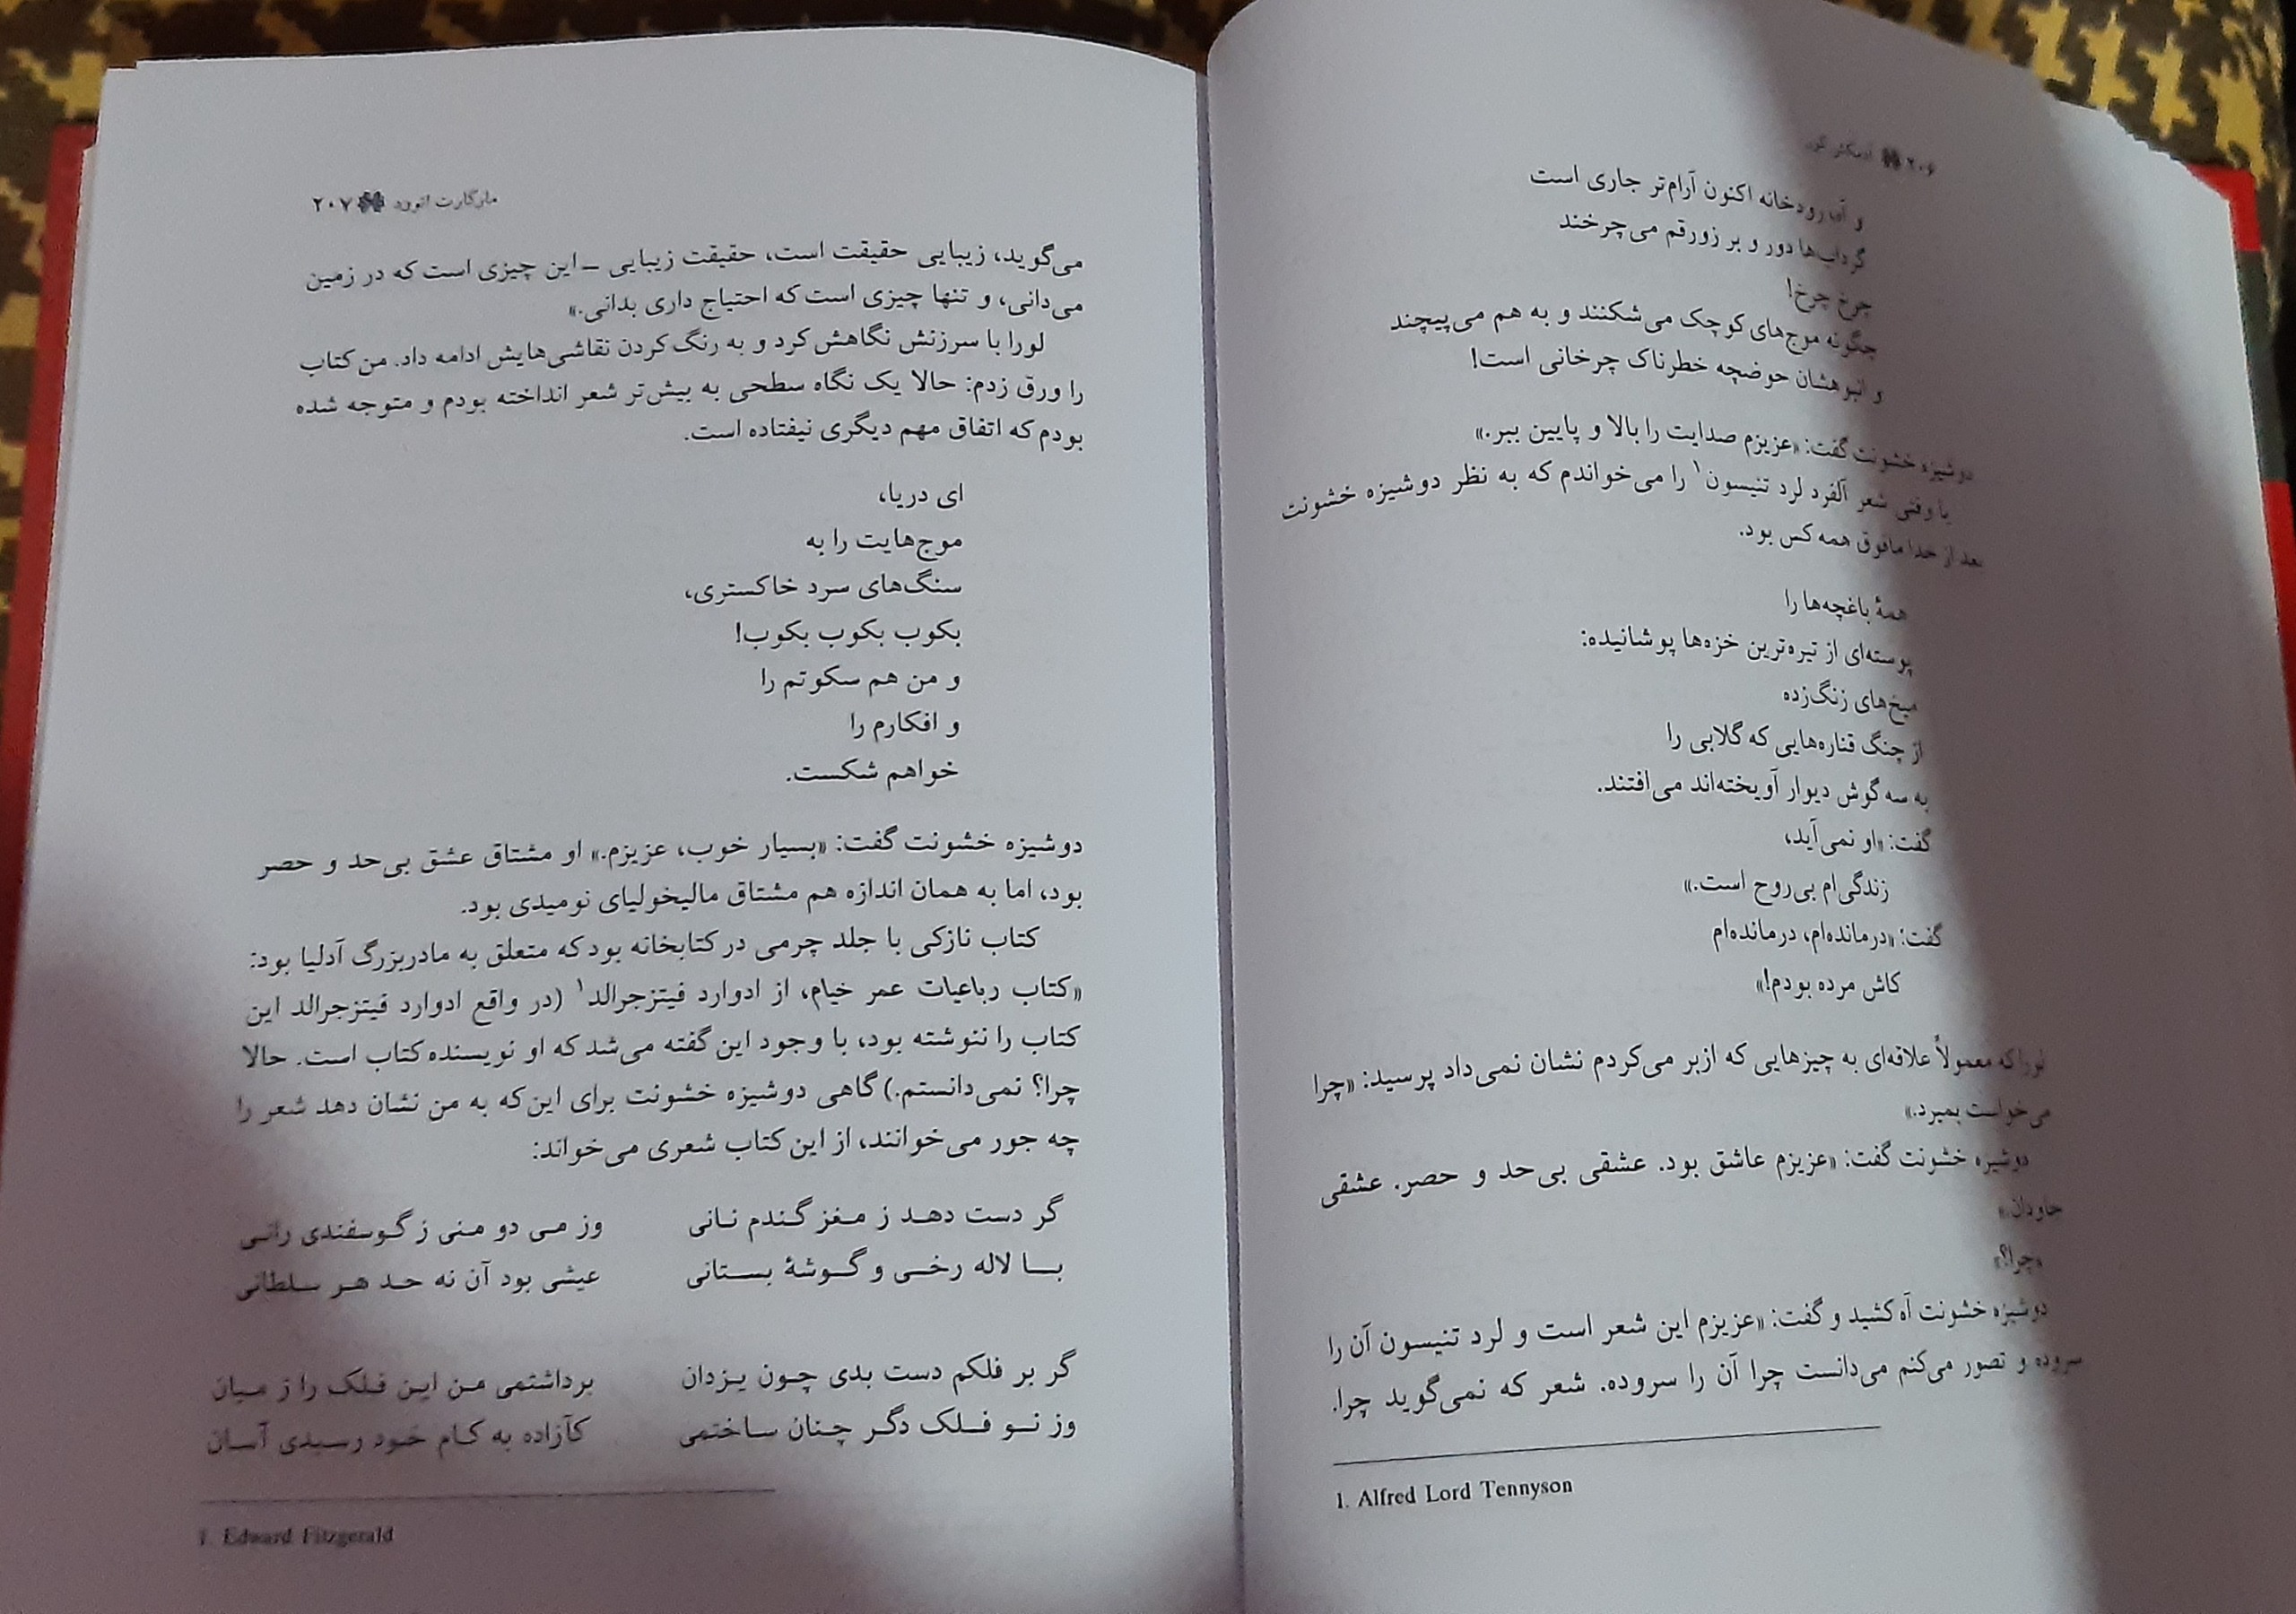 ۲۰۶ آدمکش کور
و آب رودخانه اکنون آرام‌تر جاری است
گرداب‌ها دور و بر زورقم می‌چرخند
چرخ چرخ!
چگونه موج‌های کوچک می‌شکنند و به هم می‌پیچند
و انبوهشان حوضچه خطرناک چرخانی است!
دوشیزه خشونت گفت: «عزیزم صدایت را بالا و پایین ببر.»
یا وقتی شعر آلفرد لرد تنیسون۱ را می‌خواندم که به نظر دوشیزه خشونت
بعد از خدا مافوق همه کس بود.
همهٔ باغچه‌ها را
پوسته‌ای از تیره‌ترین خزه‌ها پوشانیده:
میخ‌های زنگ‌زده
از چنگ قناره‌هایی که گلابی را
به سه گوش دیوار آویخته‌اند می‌افتند.
گفت: «او نمی‌آید،
زندگی‌ام بی‌روح است.»
گفت: «درمانده‌ام، درمانده‌ام
کاش مرده بودم!»
لورا که معمولاً علاقه‌ای به چیزهایی که ازبر می‌کردم نشان نمی‌داد پرسید: «چرا
می‌خواست بمیرد.»
دوشیزه خشونت گفت: «عزیزم عاشق بود. عشقی بی‌حد و حصر. عشقی
جاودان.»
«چرا؟»
دوشیزه خشونت آه کشید و گفت: «عزیزم این شعر است و لرد تنیسون آن را
سروده و تصور می‌کنم می‌دانست چرا آن را سروده. شعر که نمی‌گوید چرا.
1. Alfred Lord Tennyson
مارگارت اتوود ۲۰۷
می‌گوید، زیبایی حقیقت است، حقیقت زیبایی ــ این چیزی است که در زمین
می‌دانی، و تنها چیزی است که احتیاج داری بدانی.»
لورا با سرزنش نگاهش کرد و به رنگ کردن نقاشی‌هایش ادامه داد. من کتاب
را ورق زدم: حالا یک نگاه سطحی به بیش‌تر شعر انداخته بودم و متوجه شده
بودم که اتفاق مهم دیگری نیفتاده است.
ای دریا،
موج‌هایت را به
سنگ‌های سرد خاکستری،
بکوب بکوب بکوب!
و من هم سکوتم را
و افکارم را
خواهم شکست.
دوشیزه خشونت گفت: «بسیار خوب، عزیزم.» او مشتاق عشق بی‌حد و حصر
بود، اما به همان اندازه هم مشتاق مالیخولیای نومیدی بود.
کتاب نازکی با جلد چرمی در کتابخانه بود که متعلق به مادربزرگ آدلیا بود:
«کتاب رباعیات عمر خیام، از ادوارد فیتزجرالد۱ (در واقع ادوارد فیتزجرالد این
کتاب را ننوشته بود، با وجود این گفته می‌شد که او نویسنده کتاب است. حالا
چرا؟ نمی‌دانستم.) گاهی دوشیزه خشونت برای این‌که به من نشان دهد شعر را
چه جور می‌خوانند، از این کتاب شعری می‌خواند:
گر دست دهد ز مغز گندم نانی وز می دو منی ز گوسفندی رانی
با لاله رخی و گوشهٔ بستانی عیشی بود آن نه حد هر سلطانی
گر بر فلکم دست بدی چون یزدان برداشتمی من این فلک را ز میان
وز نو فلک دگر چنان ساختمی کآزاده به کام خود رسیدی آسان
1. Edward Fitzgerald